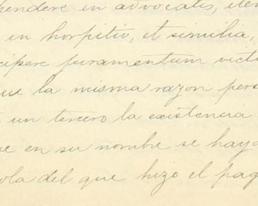 hendere in advocatis, item
in hospitio, et similia,
cipere juramentum victi
que la misma razon pers
un tercero la existencia
ve en su nombre se haya
ola del que hizo el pag